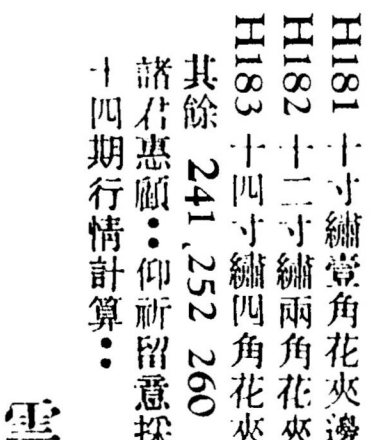 H181 十寸繡壹角花夾邊
H182 十二寸繡兩角花夾
H183 十四寸繡四角花夾
其餘 241,252 260
諸君惠顧：仰祈留意採
十四期行情計算：
雲